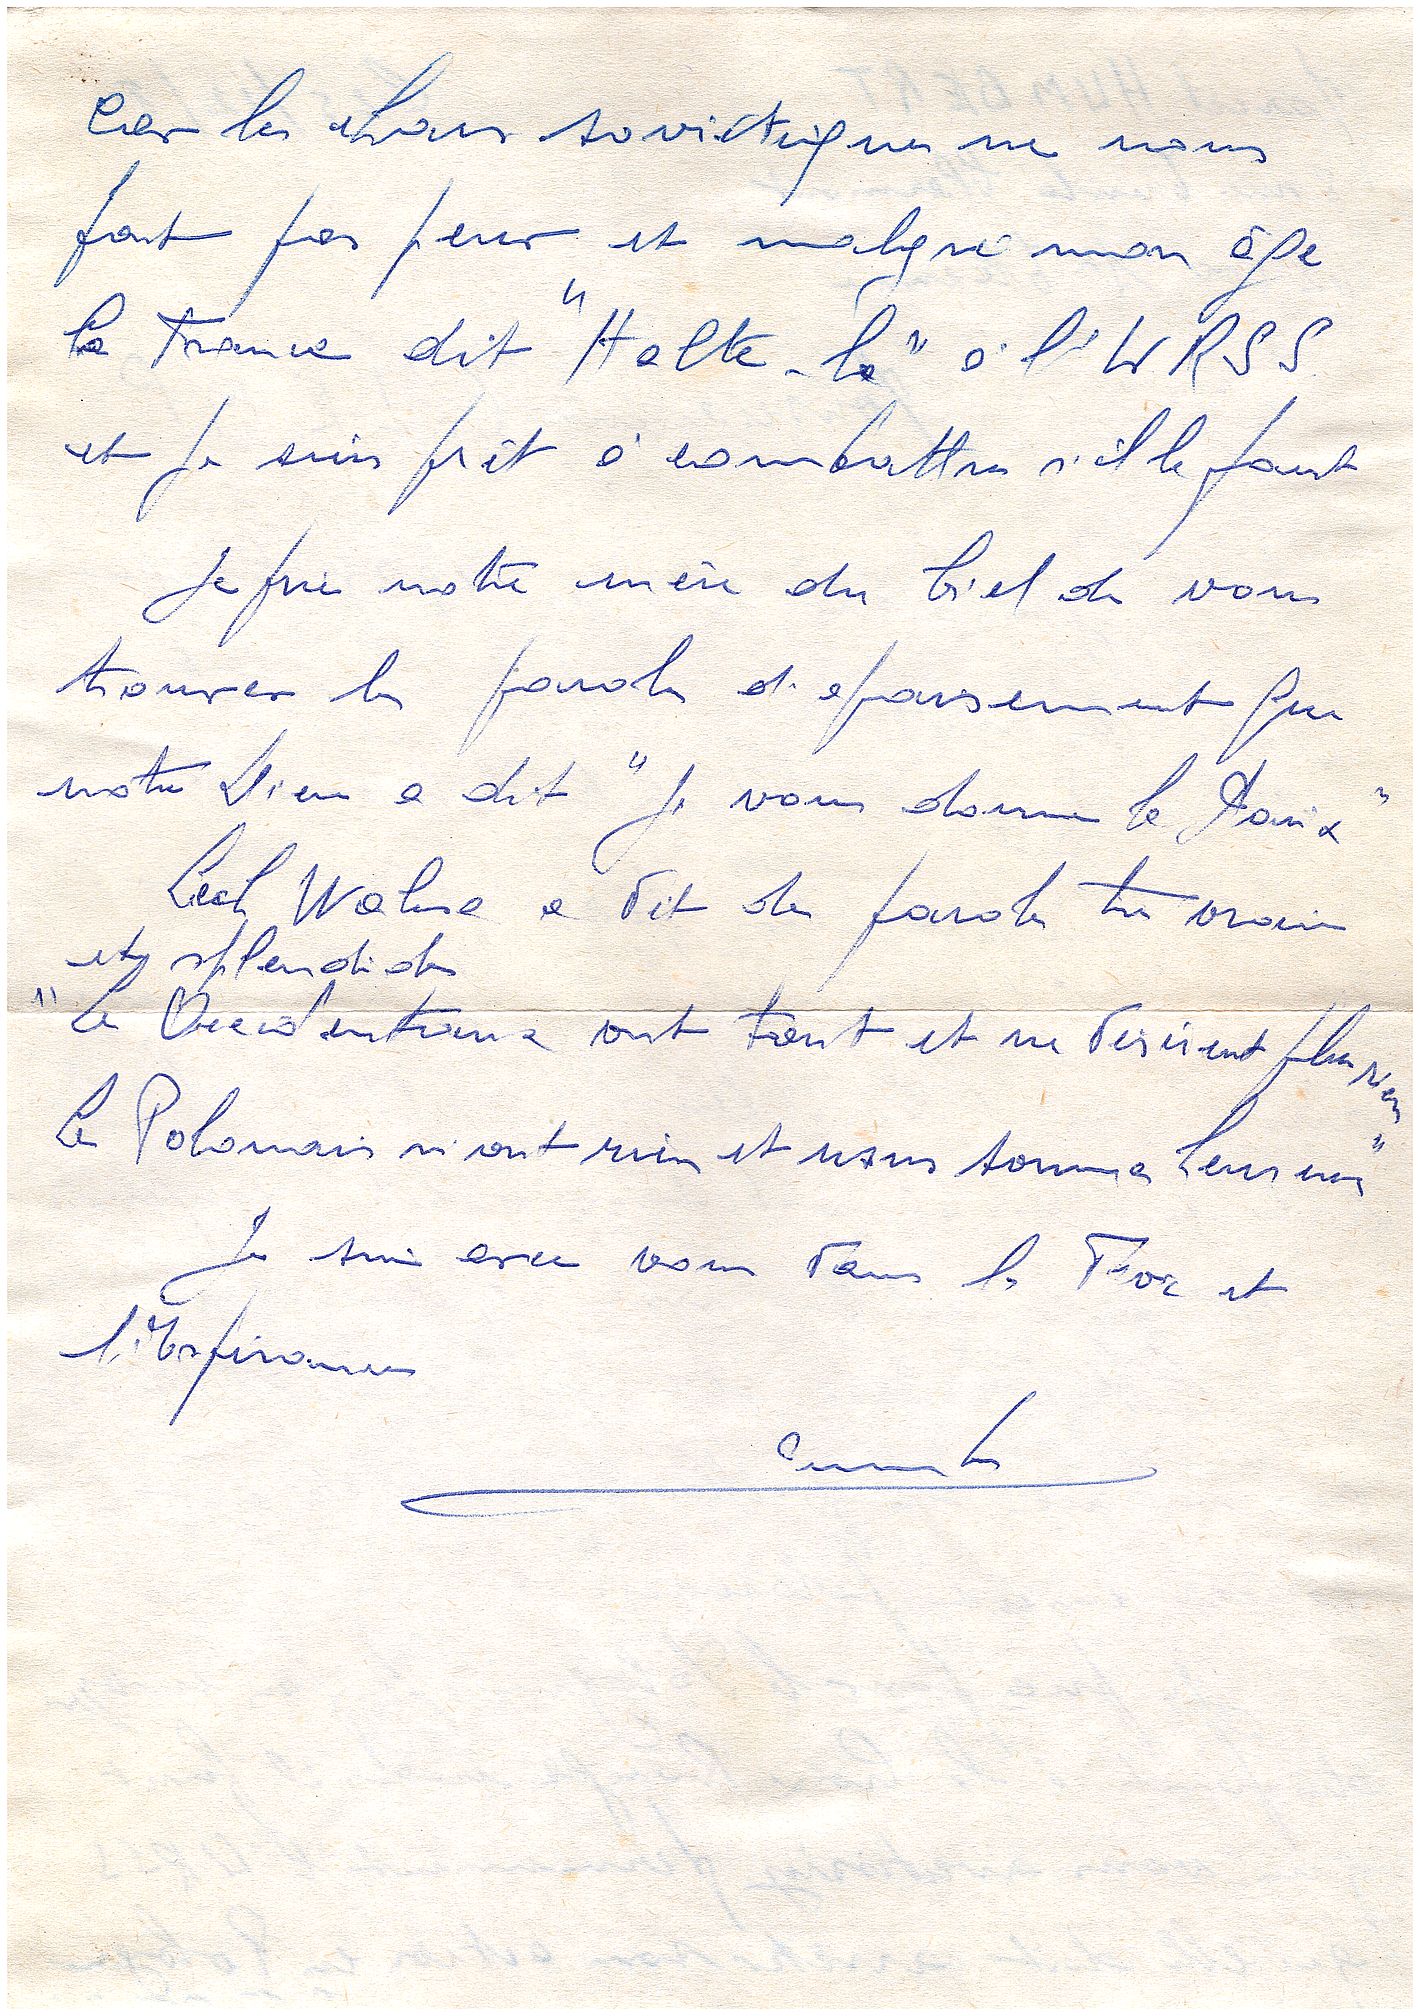 Car les chars soviétiques ne nous
font pas peur et malgré mon âge
la France dit "Halte-là" à l'URSS
et je suis prêt à combattre s'il le faut
Je prie notre mère du Ciel de vous
trouver les paroles d'apaisement que
notre Dieu a dit "Je vous donne la Paix"
Lech Walesa a dit des paroles très vraies
et splendides
"Les Occidentaux ont tout et ne désirent plus rien
Les Polonais n'ont rien et nous sommes heureux"
Je suis avec vous dans la Foi et
l'Espérance